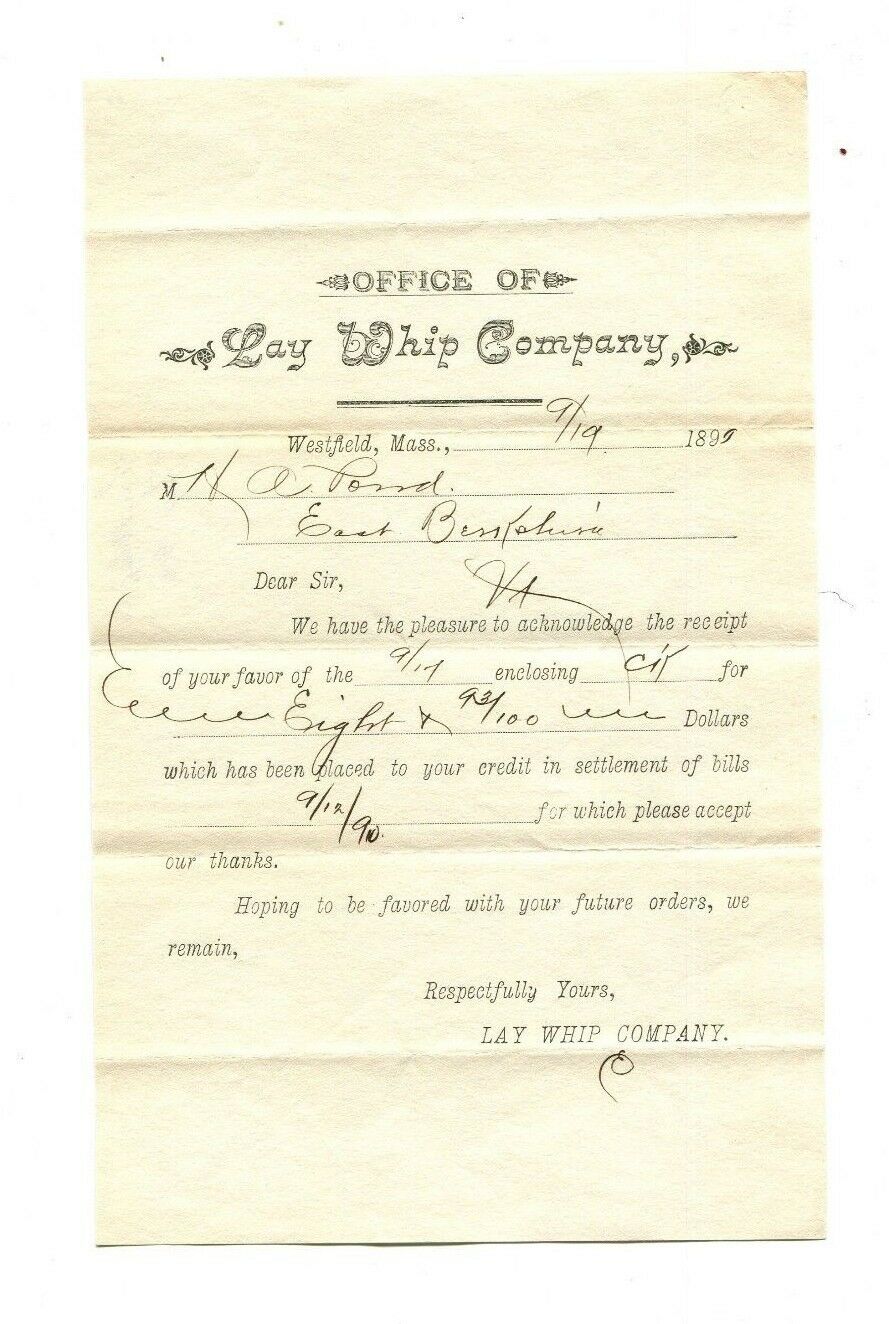 OFFICE OF
Lay Whip Company,
Westfield, Mass., 9/19 1890
M H A Pond.
East Berkshire
Vt
Dear Sir,
We have the pleasure to acknowledge the receipt
of your favor of the 9/17 enclosing CK for
Eight & 93/100 Dollars
which has been placed to your credit in settlement of bills
9/12/90. for which please accept
our thanks.
Hoping to be favored with your future orders, we
remain,
Respectfully Yours,
LAY WHIP COMPANY.